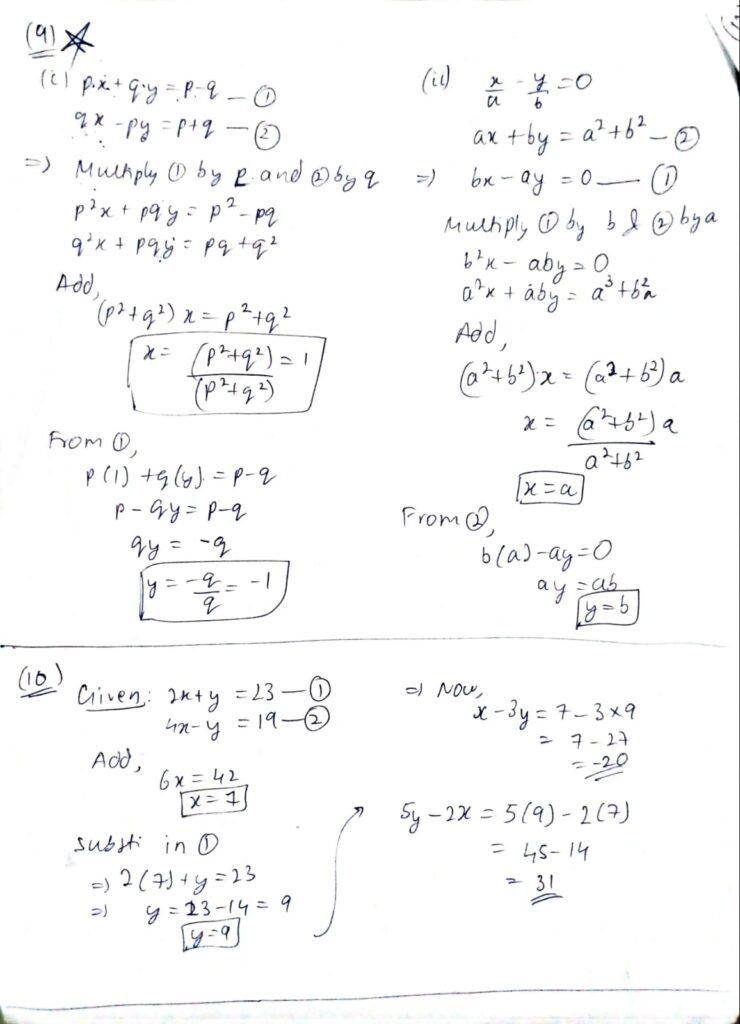 (9)
(i) p.x + q.y = p-q — ①
qx - py = p+q — ②
=) Multiply ① by p. and ② by q
p²x + pqy = p² - pq
q²x + pqy = pq + q²
Add,
(p²+q²) x = p²+q²
x = (p²+q²)/(p²+q²) = 1
From ①,
p(1) + q(y) = p-q
p - qy = p-q
qy = -q
y = -q/q = -1
(ii) x/a - y/b = 0
ax + by = a²+b² — ②
=) bx - ay = 0 — ①
Multiply ① by b & ② by a
b²x - aby = 0
a²x + aby = a³+b²a
Add,
(a²+b²).x = (a²+b²) a
x = (a²+b²) a/a²+b²
x = a
From ②,
b(a) - ay = 0
ay = ab
y = b
(10)
Given: 2x+y = 23 — ①
4x-y = 19 — ②
Add,
6x = 42
x = 7
substi in ①
=) 2(7) + y = 23
=) y = 23-14 = 9
y = 9
=) Now,
x - 3y = 7 - 3×9
= 7 - 27
= -20
5y - 2x = 5(9) - 2(7)
= 45 - 14
= 31